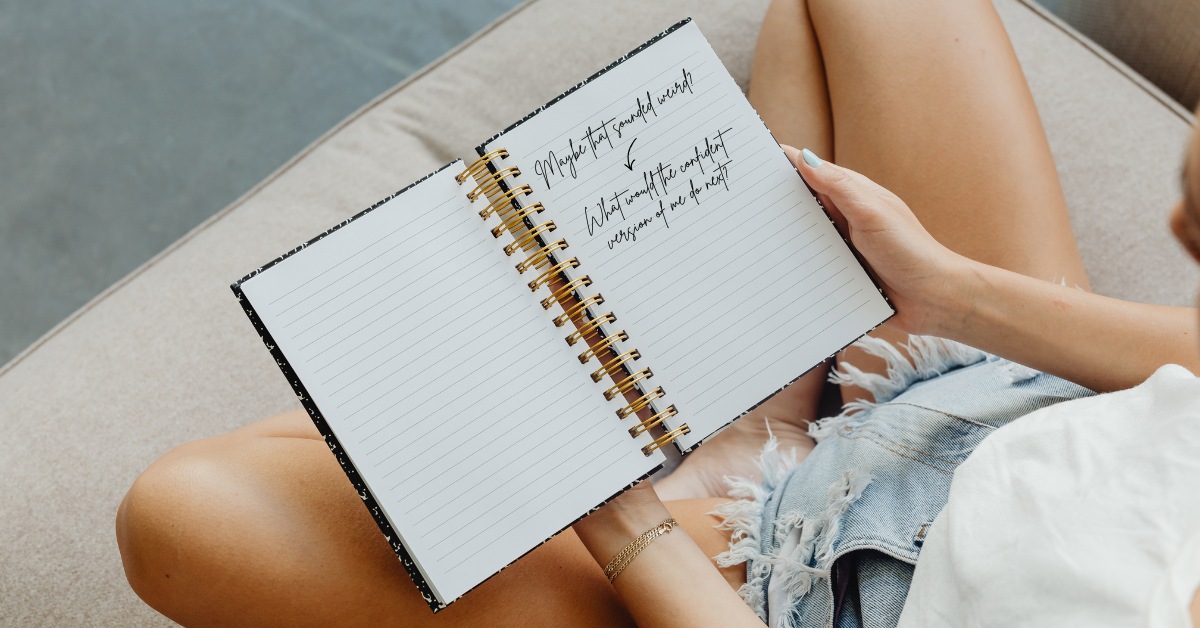 Maybe that sounded weird?
What would the confident
version of me do next?